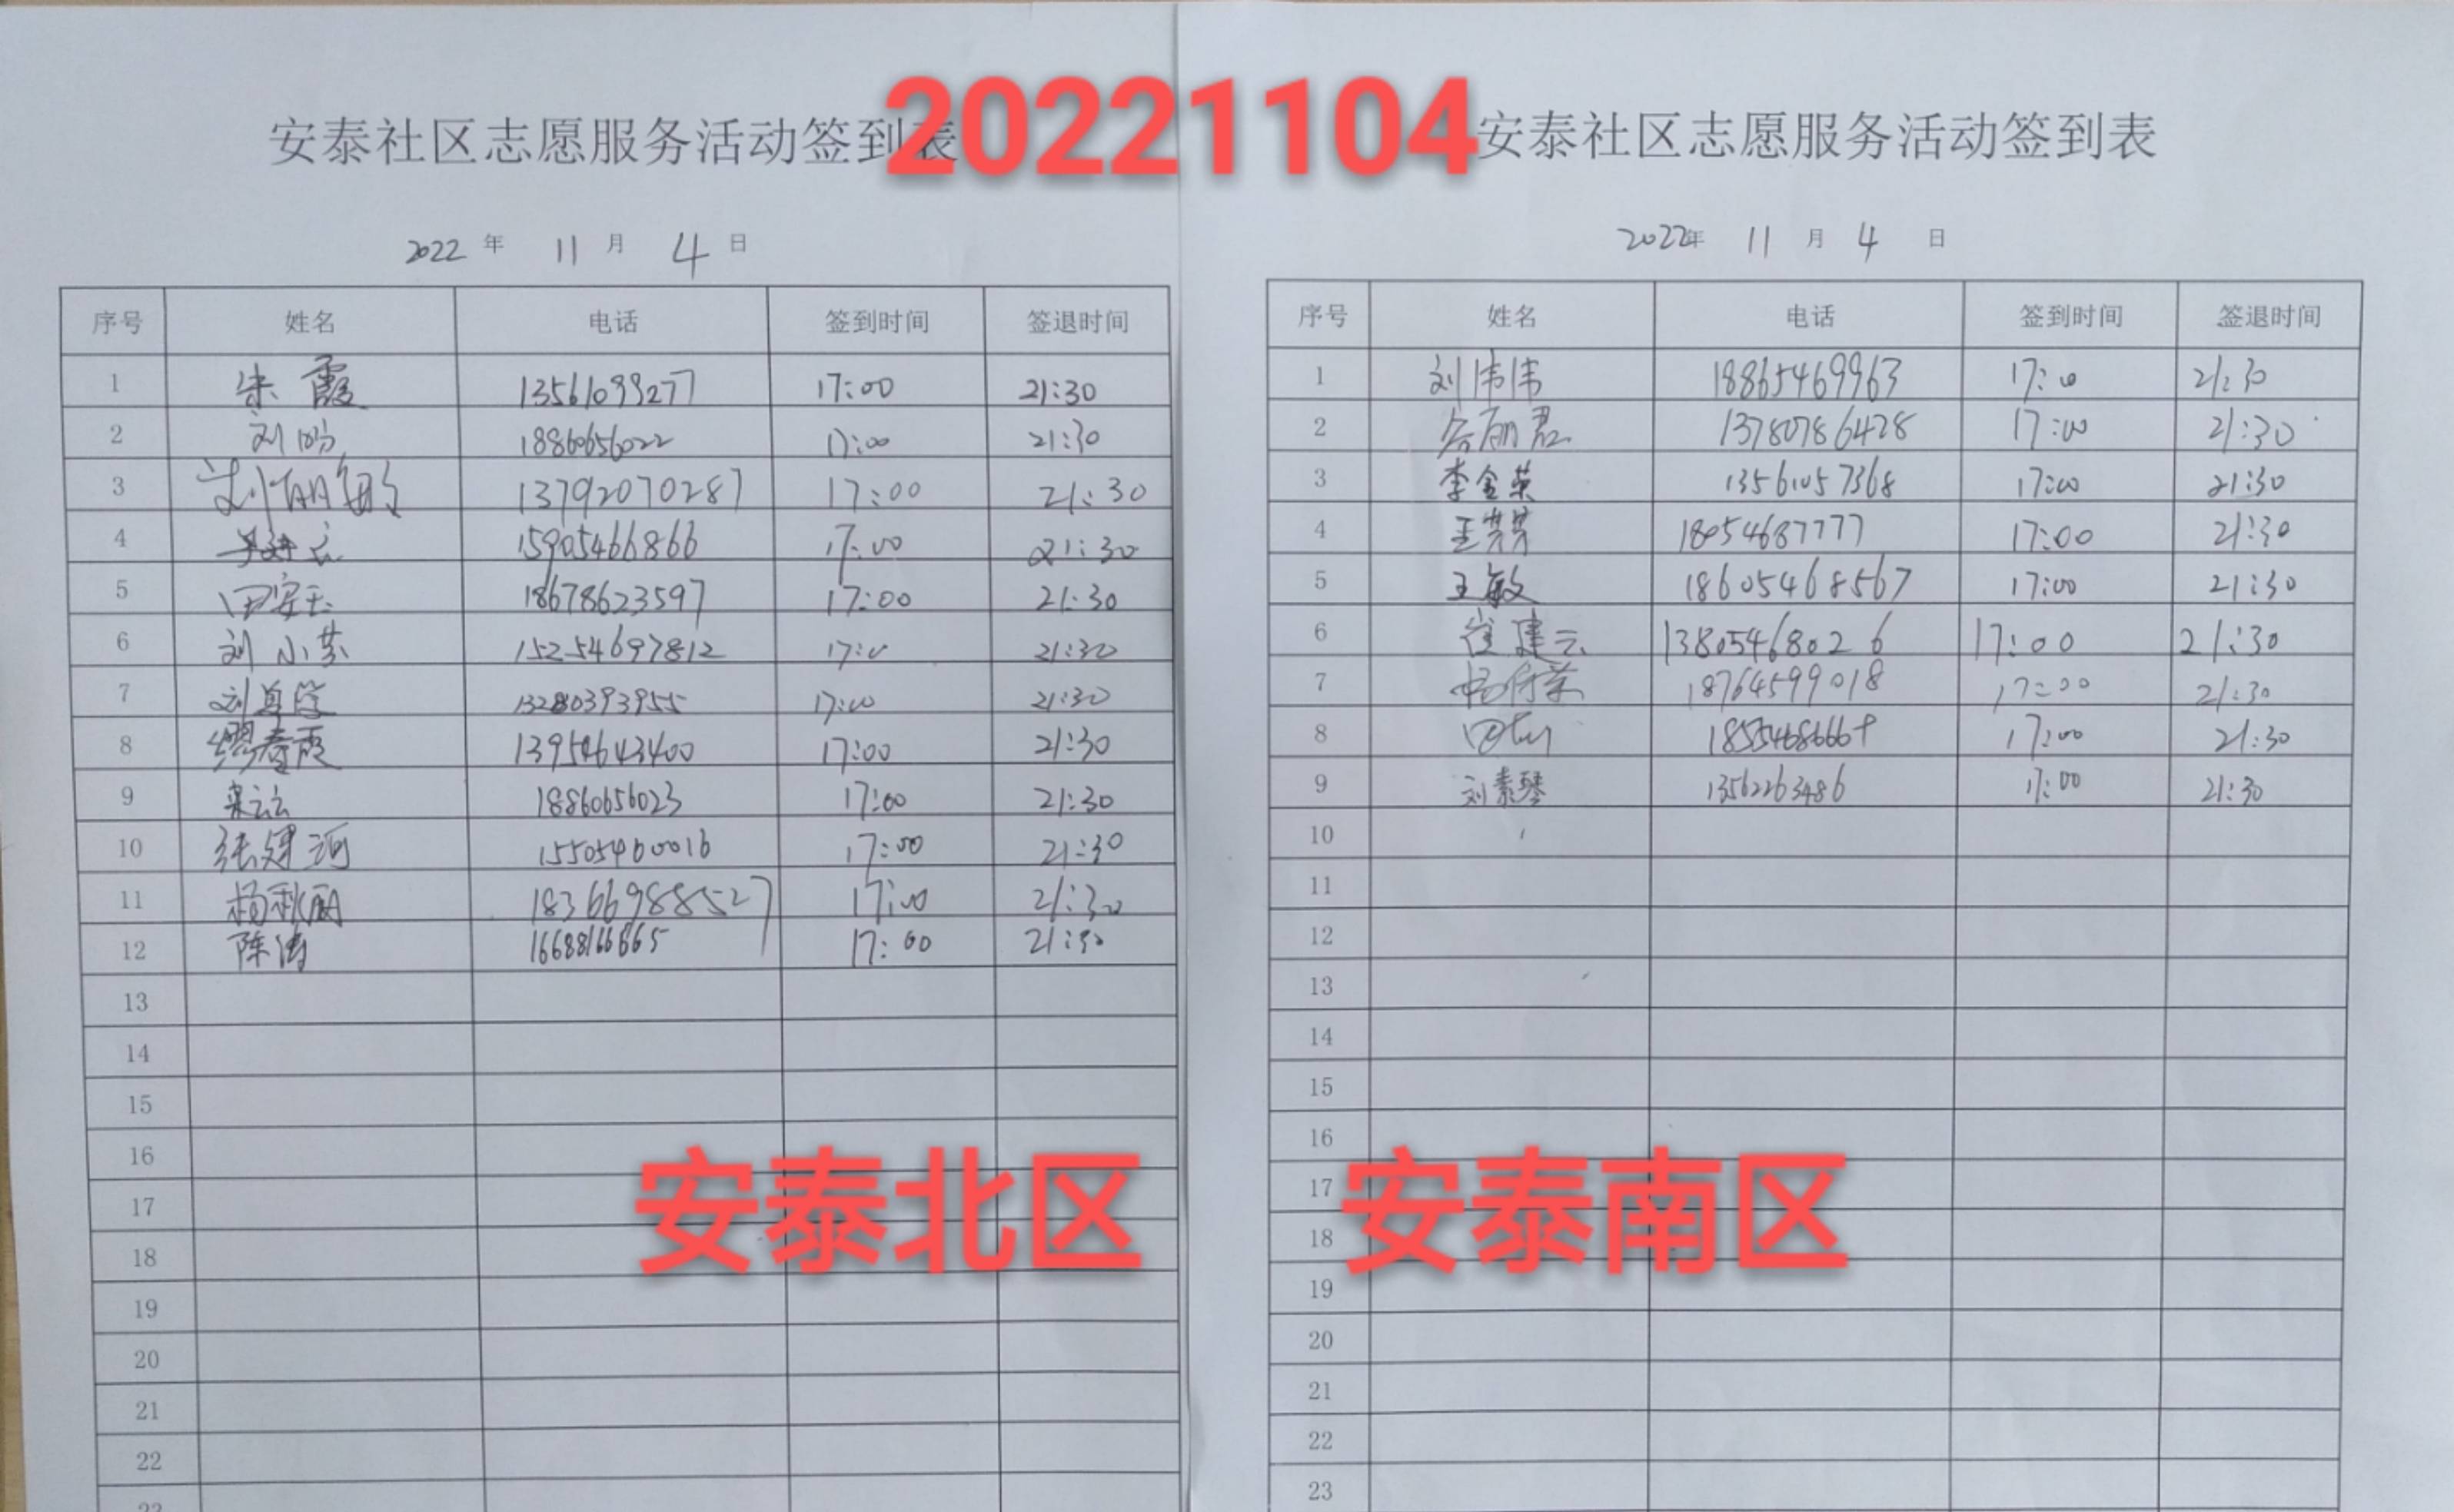 20221104
安泰社区志愿服务活动签到表
2022 年 11 月 4 日
序号 姓名 电话 签到时间 签退时间
1 朱霞 13561099277 17:00 21:30
2 刘鸣 18860656022 17:00 21:30
3 刘丽娜 13792070287 17:00 21:30
4 15905466866 17:00 21:30
5 田安玉 18678623597 17:00 21:30
6 刘小芬 15254697812 17:00 21:30
7 刘星学 13280393955 17:00 21:30
8 缪春霞 13954643400 17:00 21:30
9 栾云云 18860656023 17:00 21:30
10 张建河 15505460016 17:00 21:30
11 杨秋丽 18366988527 17:00 21:30
12 陈涛 16688166665 17:00 21:30
13
14
15
16
17
18
19
20
21
22
23
安泰北区
安泰社区志愿服务活动签到表
2022年 11 月 4 日
序号 姓名 电话 签到时间 签退时间
1 刘伟伟 18865469963 17:00 21:30
2 谷丽君 13780786428 17:00 21:30
3 李金荣 13561057368 17:00 21:30
4 王芳芳 18054687777 17:00 21:30
5 王敏 18605468567 17:00 21:30
6 崔建云 13805468026 17:00 21:30
7 18764599018 17:00 21:30
8 17:00 21:30
9 刘素琴 13562263486 17:00 21:30
10
11
12
13
14
15
16
17
18
19
20
21
22
23
安泰南区